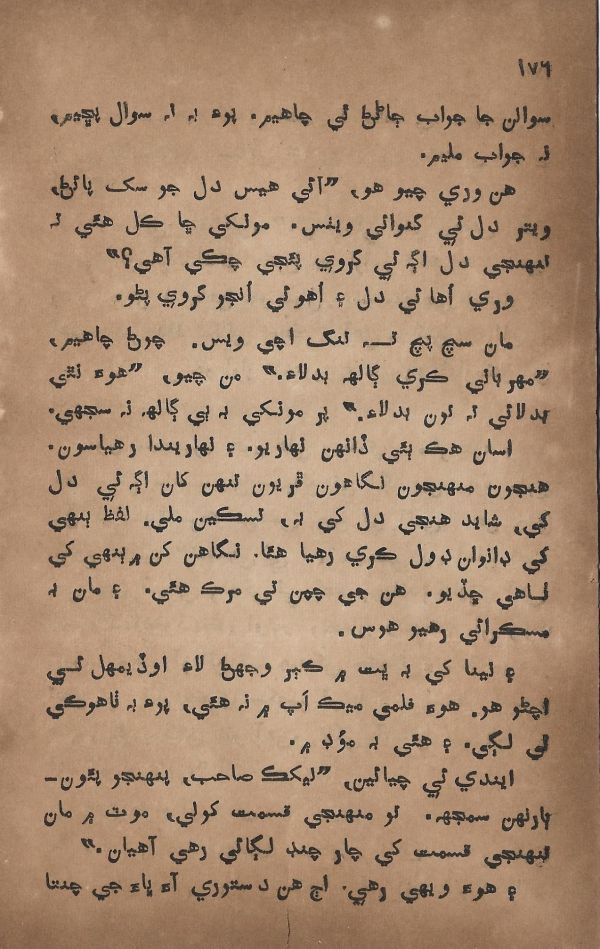 ۱۷۶
سوالن جا جواب ڄاڻڻ ٿي چاهيم. پوءِ بہ نہ سوال پڇيم،
نہ جواب مليم.
هن وري چيو هو، ”آئي هيس دل جو سک پائڻ،
ويتر دل ئي گنوائي ويٺس. مونکي ڇا کل هئي تہ
تنهنجي دل اڳ ئي گروي پئجي چڪي آهي؟“
وري اُها ئي دل ۽ اُهو ئي اُنجو گروي پئو.
مان سچ پچ تہ تنگ اچي ويس. چوڻ چاهيم،
”مهرباني ڪري ڳالهہ بدلاءِ.“ من چيو، ”هوءَ نٿي
بدلائي تہ تون بدلاءِ.“ پر مونکي بہ ٻي ڳالهہ نہ سجهي.
اسان هڪ ٻئي ڏانهن نهاريو. ۽ نهاريندا رهياسون.
هنجون منهنجون نگاهون ڦريون تنهن کان اڳ ئي دل
کي، شايد هنجي دل کي بہ، تسڪين ملي. لفظ ٻنهي
کي ڊانوان ڊول ڪري رهيا هئا. نگاهن کن ۾ ٻنهي کي
ٺاهي ڇڏيو. هن جي چپن تي مرڪ هئي. ۽ مان بہ
مسڪرائي رهيو هوس.
۽ نينا کي بہ ڀت ۾ ڪٻر وجهڻ لاءِ اوڏيمهل ئي
اچڻو هو. هوءَ فلمي ميڪ اَپ ۾ نہ هئي، پوءِ بہ ٺاهوڪي
ٿي لڳي. ۽ هئي بہ موڊ ۾.
ايندي ئي چيائين، ”ليکڪ صاحب، پنهنجو پئون-
ٻارنهن سمجهہ. تو منهنجي قسمت کولي، موٽ ۾ مان
تنهنجي قسمت کي چار چنڊ لڳائي رهي آهيان.“
۽ هوءَ ويهي رهي. اڄ هن دستوري آءُ ڀاءُ جي چنتا